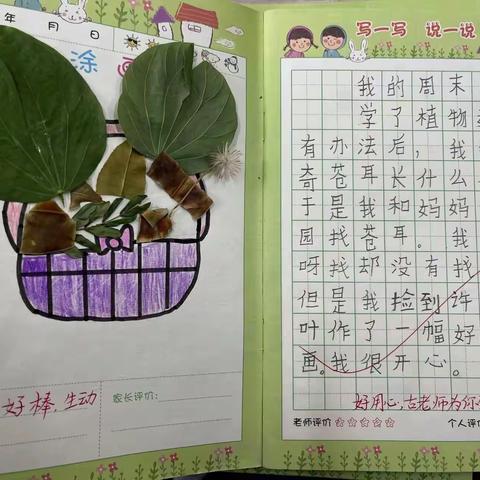 年 月 日
涂 画
好棒,生动
家长评价:
写一写 说一说
我的周末
学了植物
有办法后,我
奇苍耳长什么
于是我和妈妈
园找苍耳。我
呀找却没有找
但是我捡到许
叶作了一幅好
画。我很开心。
好用心,古老师为你
老师评价
个人评